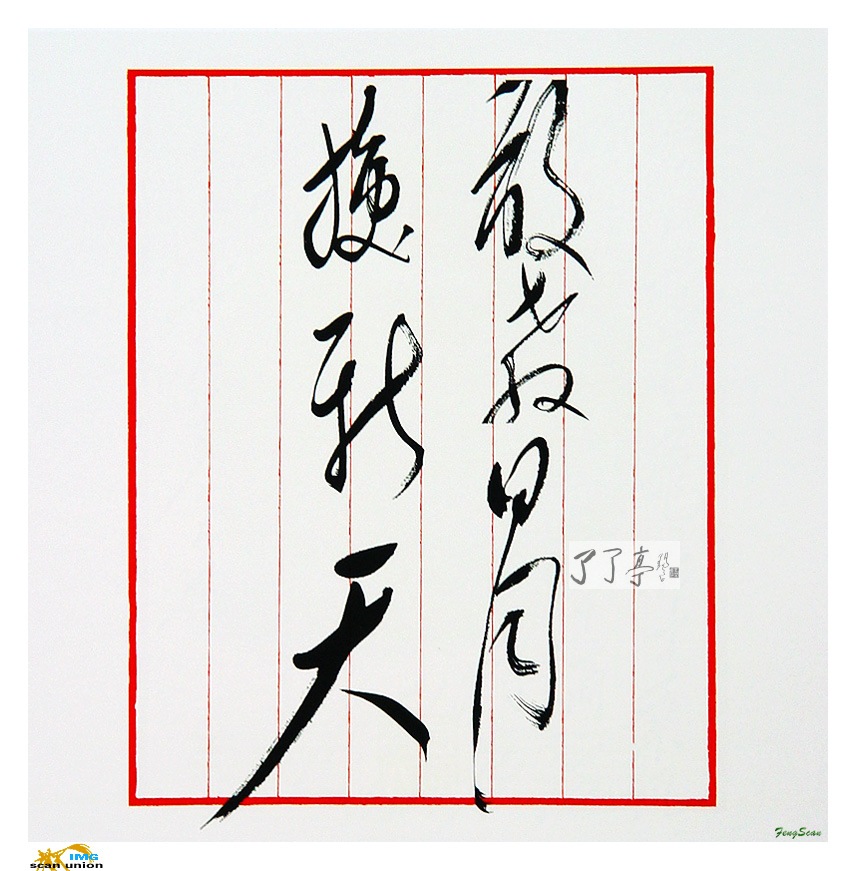 敢教日月
换新天
了了亭
FengScan
IMG
scan union